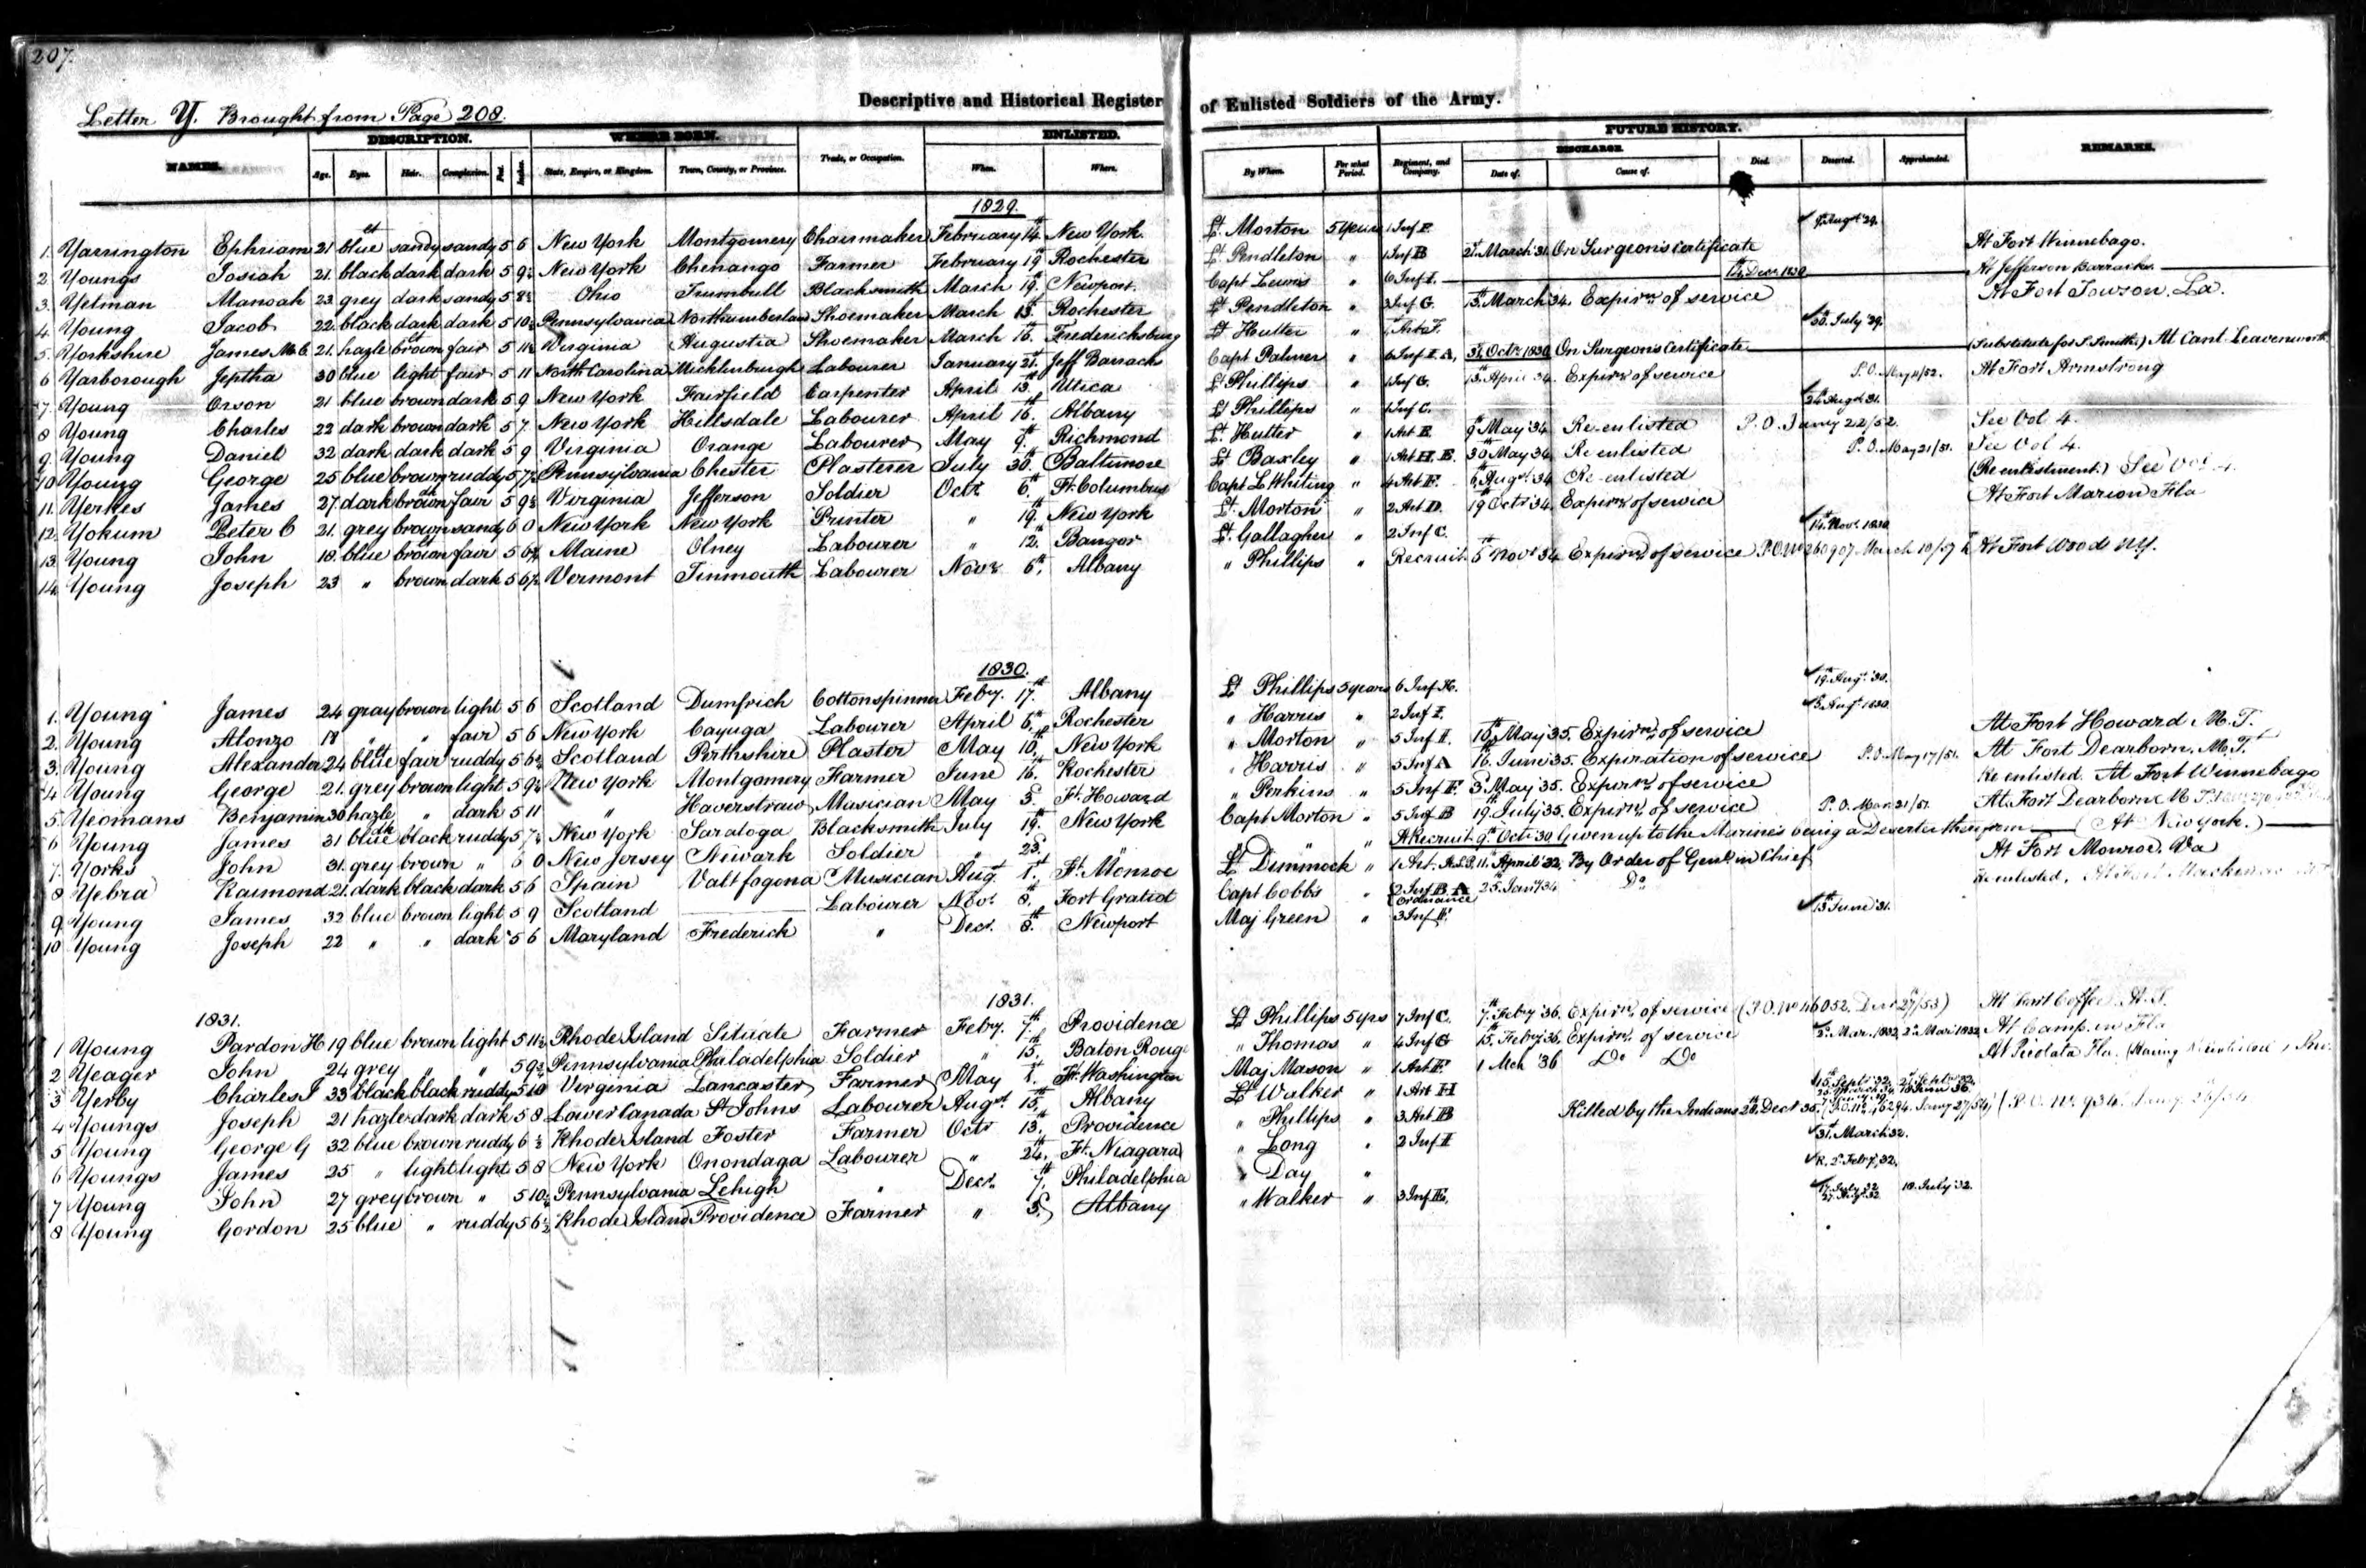 207.
Descriptive and Historical Register of Enlisted Soldiers of the Army.
Letter Y. Brought from Page 208.
DESCRIPTION. WHERE BORN. ENLISTED. FUTURE HISTORY.
DISCHARGE
NAMES. Age. Eyes. Hair. Complexion. Feet. Inches. State, Empire, or Kingdom. Town, County, or Province. Trade, or Occupation. When. Where. By Whom. For what Period. Regiment, and Company. Date of. Cause of. Died. Deserted. Apprehended. REMARKS.
1829.
1. Yarrington Ephriam 21 blue sandy sandy 5 6 New York Montgomery Chairmaker February 14th New York Lt. Morton 5 Years 1 Inf F. 9th Augt 29.
2 Youngs Josiah 21. black dark dark 5 9½ New York Chenango Farmer February 19 Rochester Lt Pendleton " 1 Inf B 21 March 31. On Surgeons Certificate At Fort Winnebago.
3. Yelman Manoah 23 grey dark sandy 5 8½ Ohio Trumbull Blacksmith March 19th Newport. Capt Lewis " 6 Inf I. Decr 1830 At Jefferson Barracks.
4. Young Jacob 22 black dark dark 5 10½ Pennsylvania Northumberland Shoemaker March 13th Rochester Lt Pendleton " 3 Inf G. 13th March 34. Expirn of service At Fort Towson. La.
5. Yorkshire James McC. 21. hazle brown fair 5 11½ Virginia Augustia Shoemaker March 16th Fredericksburg Lt Hutter " 1 Art F. 30th July 29.
6 Yarborough Jeptha 30 blue light fair 5 11 North Carolina Micklinburgh Labourer January 21st Jeff Barracks Capt Palmer " 6 Inf I. A, 31st Octr 1830 On Surgeons Certificate (Substitute for S. Smith.) At Cant. Leavenworth
7. Young Orson 21 blue brown dark 5 9 New York Fairfield Carpenter April 13th Utica Lt Phillips " 1 Inf G. 13th April 34. Expirn of service P.O. May 11/52. At Fort Armstrong
8 Young Charles 22 dark brown dark 5 7 New York Hillsdale Labourer April 16th Albany Lt Phillips " 1 Inf C. 24 Augt 31.
9. Young Daniel 32 dark dark dark 5 9 Virginia Orange Labourer May 9th Richmond Lt. Hutter " 1 Art E. 9th May 34 Re-enlisted P.O. Jany 22/52. See Vol 4.
10 Young George 25 blue brown ruddy 5 7½ Pennsylvania Chester Plasterer July 30th Baltimore Lt Baxley " 1 Art H. E. 30th May 34 Re enlisted P.O. May 21/51. See Vol 4.
11. Yerkes James 27. dark brown fair 5 9½ Virginia Jefferson Soldier Octr 6th Ft. Columbus Capt L. Whiting " 4 Art F. 6th Augt 34 Re-enlisted (Re enlistment.) See Vol 4.
12. Yokum Peter C 21. grey brown sandy 6 0 New York New York Printer " 19th New York Lt. Morton " 2 Art D. 19th Octr 34. Expirn of service At Fort Marion Fla
13. Young John 18. blue brown fair 5 6¾ Maine Olney Labourer " 12th Bangor Lt. Gallagher " 2 Inf C. 14th Novr. 1830
14. Young Joseph 23 " brown dark 5 6½ Vermont Tinmouth Labourer Novr 6th, Albany " Phillips " Recruit. 5th Novr 34 Expirn of service P.O. No 260907 March 10/57 At Fort Wood NY.
1830.
1. Young James 24 gray brown light 5 6 Scotland Dumfrich Cottonspinner Feby. 17th Albany Lt Phillips 5 years 6 Inf H. 19th Augt 30.
2. Young Alonzo 18 " " fair 5 6 New York Cayuga Labourer April 6th Rochester " Harris " 2 Inf I. 5th Augt 1830
3. Young Alexander 24 blue fair ruddy 5 6½ Scotland Perthshire Plaster May 10th New York " Morton " 5 Inf H. 10th May 35. Expirn of service At Fort Howard M.T.
4 Young George 21. grey brown light 5 9½ New York Montgomery Farmer June 16th Rochester " Harris " 5 Inf A 16th June 35. Expiration of service P.O. May 17/51. At Fort Dearborn. M.T.
5. Yeomans Benjamin 30 hazle " dark 5 11 " Haverstraw Musician May 3d Ft. Howard " Perkins " 5 Inf F 3d May 35. Expirn of service Re enlisted. At Fort Winnebago
6 Young James 31 blue black ruddy 5 7½ New York Saratoga Blacksmith July 19th New York Capt Morton " 5 Inf B 19th July 35. Expirn of service P.O. Mar 21/51. At Fort Dearborn M T.
7. Yorks John 31. grey brown " 6 0 New Jersey Newark Soldier " 23. " " " A Recruit 9th Oct 30 Given up to the Marines being a Deserter therefrom (At New York.)
8 Yebra Raimond 21. dark black dark 5 6 Spain Valtfogona Musician Augt 1st Ft. Monroe Lt Dimmock " 1 Art. A.S.P. 11th April 32. By Order of Genl in Chief At Fort Monroe. Va
9 Young James 32 blue brown light 5 9 Scotland Labourer Novr 8th Fort Gratiot Capt Cobbs " 2 Inf B. A Ordnance 25th Jany 34 Do Re enlisted.
10 Young Joseph 22 " " dark 5 6 Maryland Frederick " Decr. 8th Newport Maj Green " 3 Inf 13th June 31.
1831. 1831.
1 Young Pardon H 19 blue brown light 5 11½ Rhode Island Situate Farmer Feby. 7th Providence Lt Phillips 5 yrs 7 Inf C. 7th Feby 36. Expirn of service (P.O. No 46052. Decr 27/53) At Fort Coffee A.T.
2 Yeager John 24 grey " " 5 9½ Pennsylvania Philadelphia Soldier " 15th Baton Rouge " Thomas " 4 Inf G 15th Feby 36. Expirn of service 2d Mar. 1832, 2d Mar 1832 At Camp in Fla
3 Yerby Charles 33 black black ruddy 5 10 Virginia Lancaster Farmer May 1st Ft. Washington Maj Mason " 1 Art F. 1 Mch 36 Do Do
4 Youngs Joseph 21 hazle dark dark 5 8 Lower Canada St Johns Labourer Augt. 15th Albany Lt Walker " 1 Art H
5 Young George G 32 blue brown ruddy 6 ½ Rhode Island Foster Farmer Octr 13. Providence " Phillips " 3 Art B Killed by the Indians 28. Decr 35.
6 Youngs James 25 " light light 5 8 New York Onondaga Labourer " 24th Ft. Niagara " Long " 2 Inf I 31st March 32.
7 Young John 27 grey brown " 5 10½ Pennsylvania Lehigh " Decr. 7th Philadelphia " Day " R. 2d Feby. 32.
8 Young Gordon 25 blue " ruddy 5 6½ Rhode Island Providence Farmer " 5. Albany " Walker " 3 Inf 17. July 32 18. July 32.